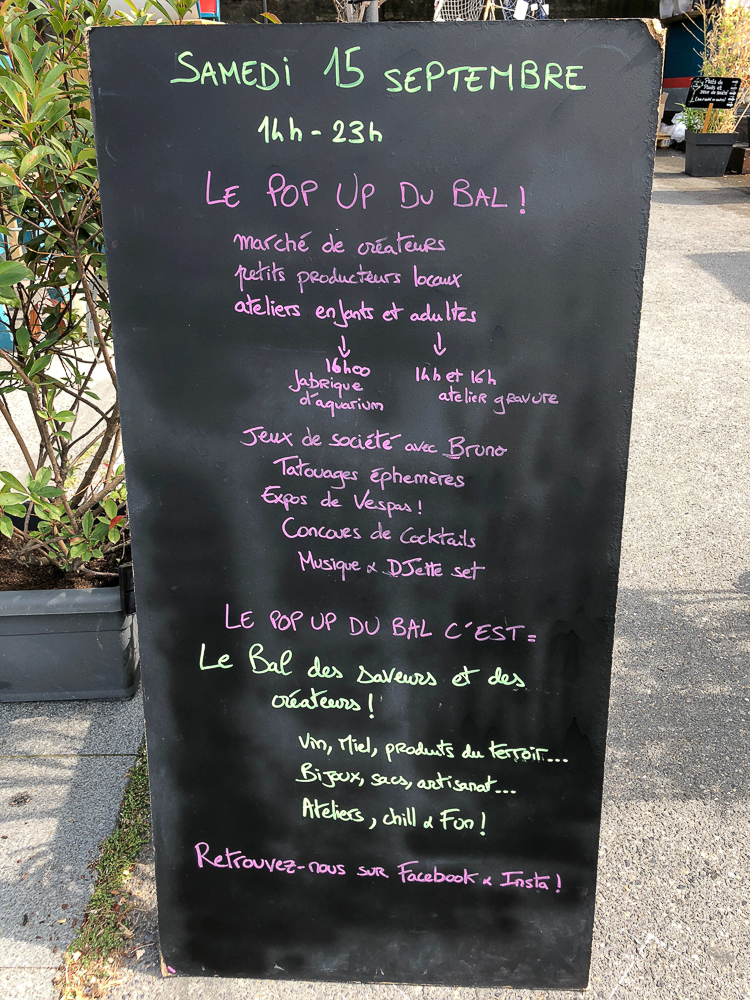 SAMEDI 15 SEPTEMBRE
14h - 23h
LE POP UP DU BAL !
marché de créateurs
petits producteurs locaux
ateliers enfants et adultes
↓ ↓
16h00 14h et 16h
fabrique atelier gravure
d'aquarium
Jeux de société avec Bruno
Tatouages éphemères
Expos de Vespas !
Concours de Cocktails
Musique & DJette set
LE POP UP DU BAL C'EST =
Le Bal des saveurs et des
créateurs !
Vin, Miel, produits du terroir...
Bijoux, sacs, artisanat...
Ateliers, chill & Fun !
Retrouvez-nous sur Facebook & Insta !